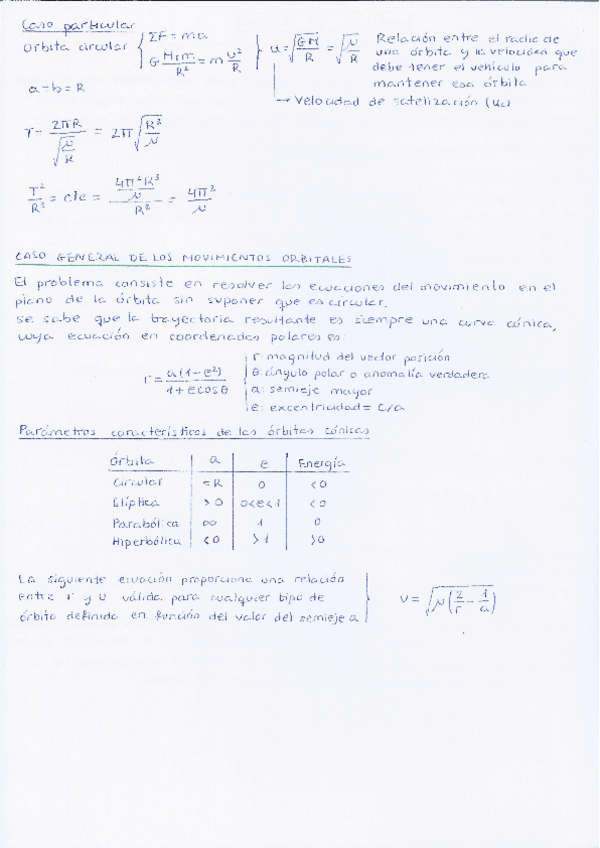 Caso particular
Orbita circular { ΣF = ma
G M·m/R² = m v²/R } u = √(GM/R) = √(μ/R)
Relación entre el radio de
una órbita y la velocidad que
debe tener el vehículo para
mantener esa órbita
a = b = R
→ Velocidad de satelización (Uc)
T = 2πR/√(μ/R) = 2π√(R³/μ)
T²/R³ = cte = (4π²R³/μ)/R³ = 4π²/μ
CASO GENERAL DE LOS MOVIMIENTOS ORBITALES
El problema consiste en resolver las ecuaciones del movimiento en el
plano de la órbita sin suponer que es circular.
Se sabe que la trayectoria resultante es siempre una curva cónica,
cuya ecuación en coordenadas polares es:
r = a(1-e²)/(1+e cosθ)
r: magnitud del vector posición
θ: ángulo polar o anomalía verdadera
a: semieje mayor
e: excentricidad = c/a
Parámetros característicos de las órbitas cónicas
Órbita | a | e | Energía
Circular | =R | 0 | <0
Elíptica | >0 | 0<e<1 | <0
Parabólica | ∞ | 1 | 0
Hiperbólica | <0 | >1 | >0
La siguiente ecuación proporciona una relación
entre r y v válida para cualquier tipo de
órbita definida en función del valor del semieje a
v = √(μ(2/r - 1/a))